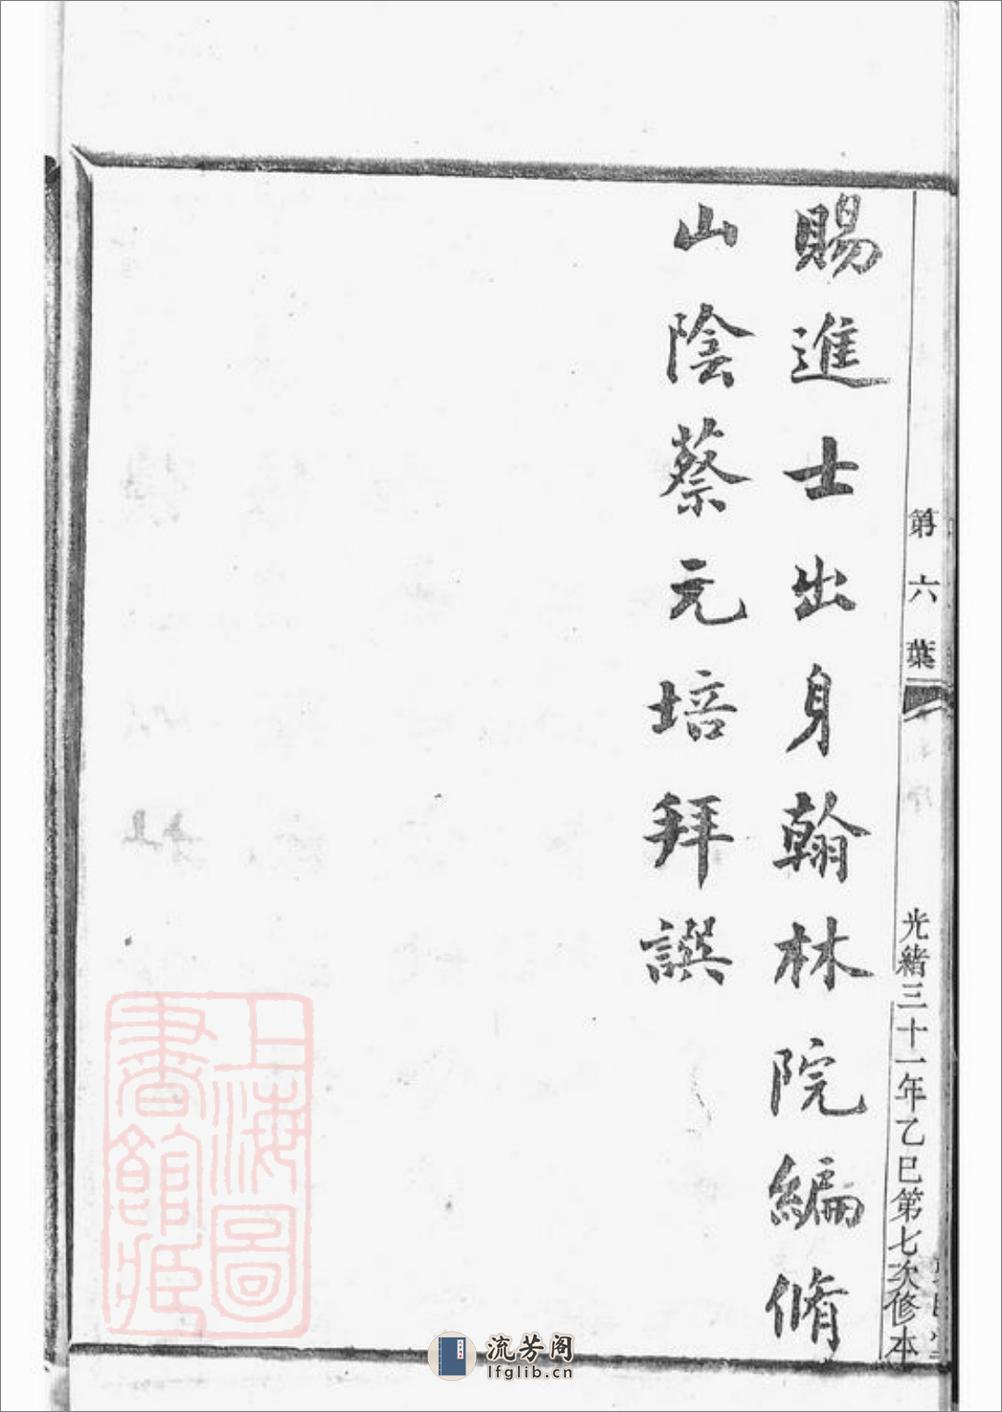 第六葉
光緒三十一年乙巳第七次修本
賜進士出身翰林院編脩
山陰蔡元培拜譔
上海圖
書館藏
流芳阁
lfglib.cn